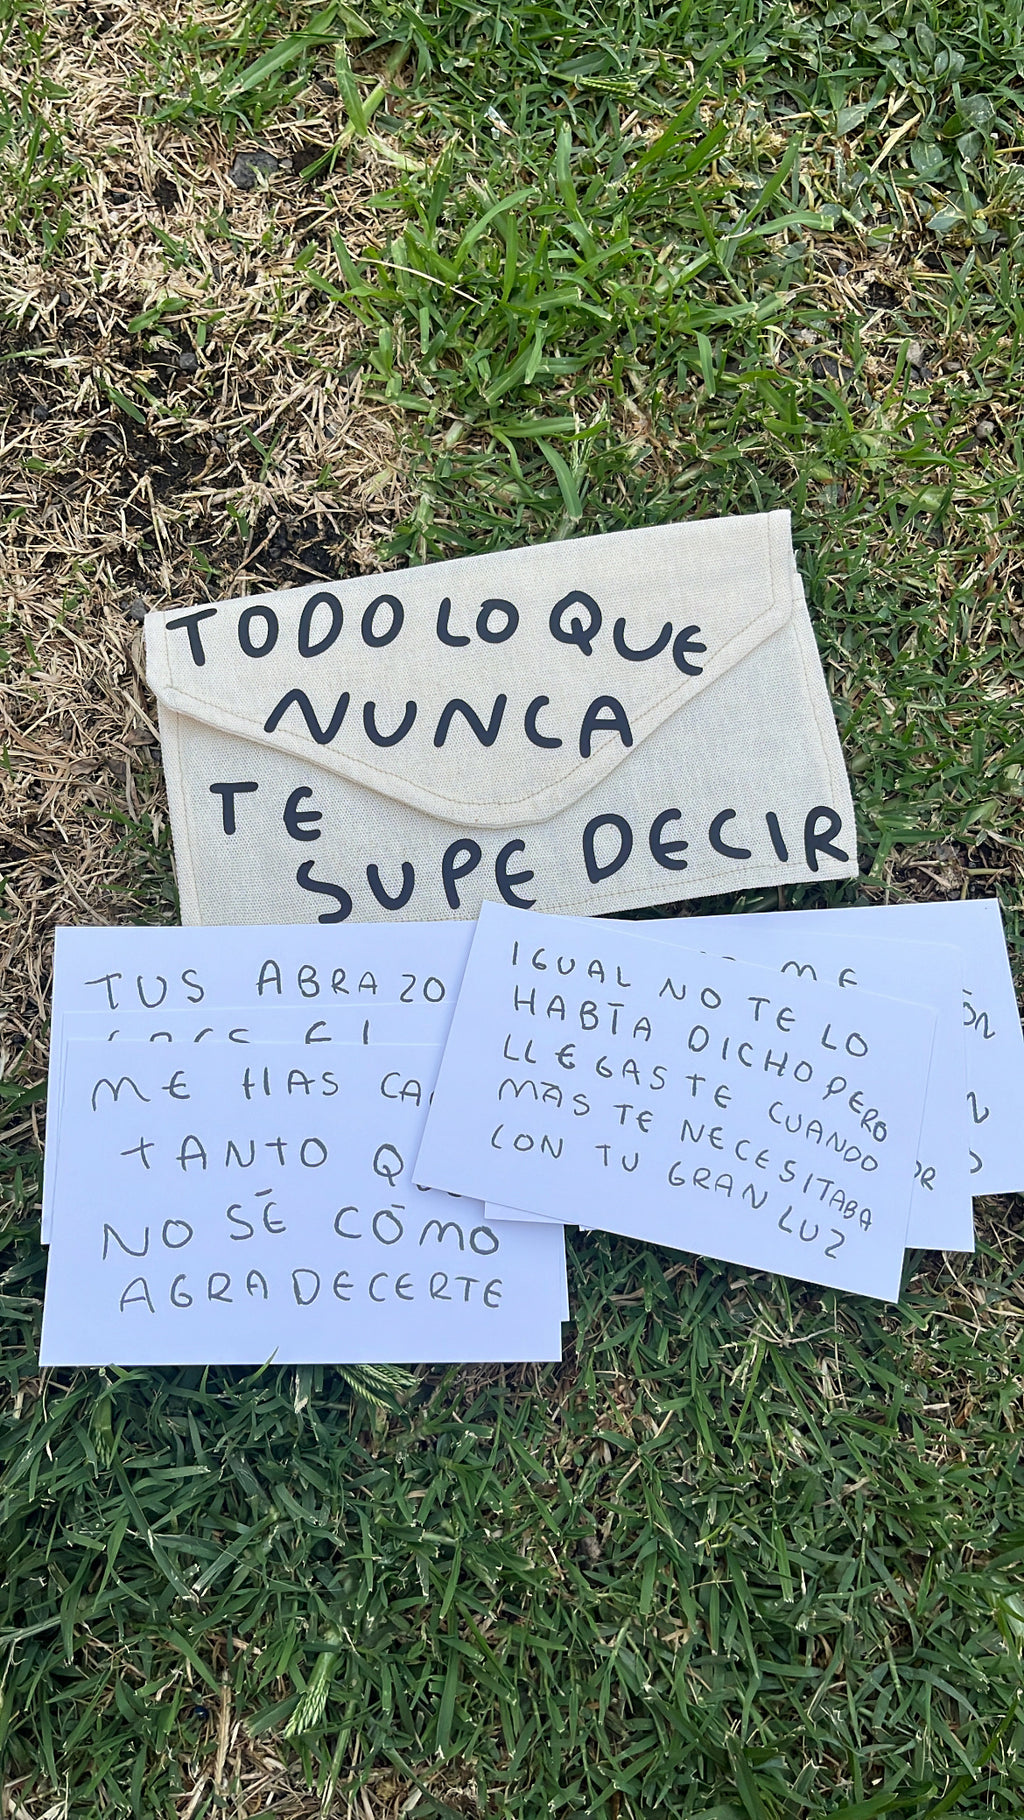 TODO LO QUE
NUNCA
TE
SUPE DECIR
TUS ABRAZO
ME HAS CA
TANTO
NO SÉ CÓMO
AGRADECERTE
IGUAL NO TE LO
HABÍA DICHO PERO
LLEGASTE CUANDO
MÁS TE NECESITABA
CON TU GRAN LUZ
ME